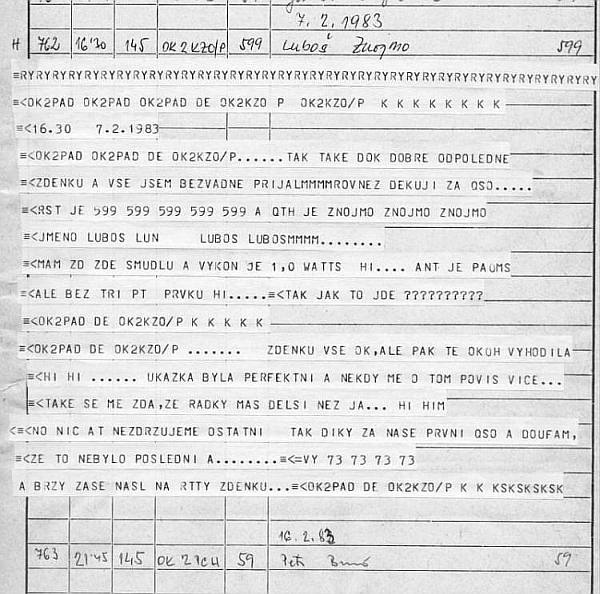 7. 2. 1983
H 762 16'30 145 OK2KZO/P 599 Luboš Znojmo 599
≡RYRYRYRYRYRYRYRYRYRYRYRYRYRYRYRYRYRYRYRYRYRYRYRYRYRYRYRYRYRYRYRYRY
≡<OK2PAD OK2PAD OK2PAD DE OK2KZO P OK2KZO/P K K K K K K K K
≡<16.30 7.2.1983
≡<OK2PAD OK2PAD DE OK2KZO/P......TAK TAKE DOK DOBRE ODPOLEDNE
≡<ZDENKU A VSE JSEM BEZVADNE PRIJALMMMMROVNEZ DEKUJI ZA QSO.....
≡<RST JE 599 599 599 599 599 A QTH JE ZNOJMO ZNOJMO ZNOJMO
≡<JMENO LUBOS LUN LUBOS LUBOSMMMM........
≡<MAM ZD ZDE SMUDLU A VYKON JE 1,0 WATTS HI.... ANT JE PAOMS
≡<ALE BEZ TRI PT PRVKU HI.....≡<TAK JAK TO JDE ??????????
≡<OK2PAD DE OK2KZO/P K K K K K
≡<OK2PAD DE OK2KZO/P ....... ZDENKU VSE OK,ALE PAK TE OKOH VYHODILA
≡<HI HI ...... UKAZKA BYLA PERFEKTNI A NEKDY ME O TOM POVIS VICE...
≡<TAKE SE ME ZDA,ZE RADKY MAS DELSI NEZ JA... HI HIM
<≡<NO NIC AT NEZDRZUJEME OSTATNI TAK DIKY ZA NASE PRVNI QSO A DOUFAM,
≡<ZE TO NEBYLO POSLEDNI A........≡<=VY 73 73 73 73
A BRZY ZASE NASL NA RTTY ZDENKU...≡<OK2PAD DE OK2KZO/P K K KSKSKSKSK
16. 2. 83
763 21'45 145 59 Petr 59